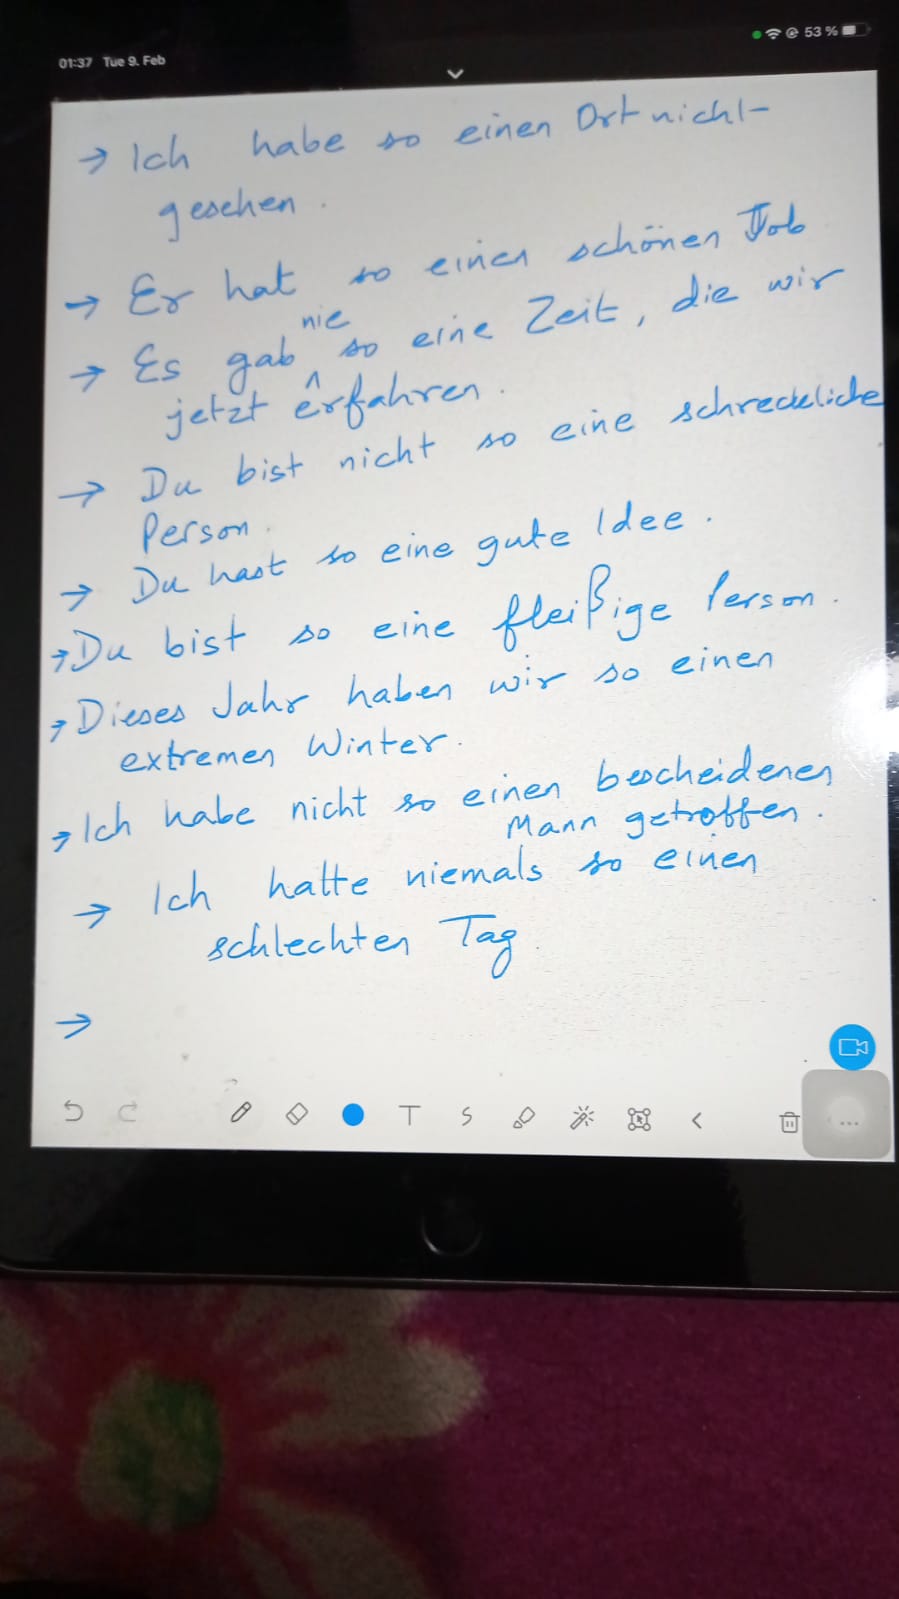 01:37 Tue 9. Feb
53 %
→ Ich habe so einen Ort nicht
gesehen.
→ Er hat so einen schönen Job
nie
→ Es gab so eine Zeit, die wir
jetzt erfahren.
→ Du bist nicht so eine schreckliche
Person.
→ Du hast so eine gute Idee.
→ Du bist so eine fleißige Person.
→ Dieses Jahr haben wir so einen
extremen Winter.
→ Ich habe nicht so einen bescheidenen
Mann getroffen.
→ Ich hatte niemals so einen
schlechten Tag.
→
T